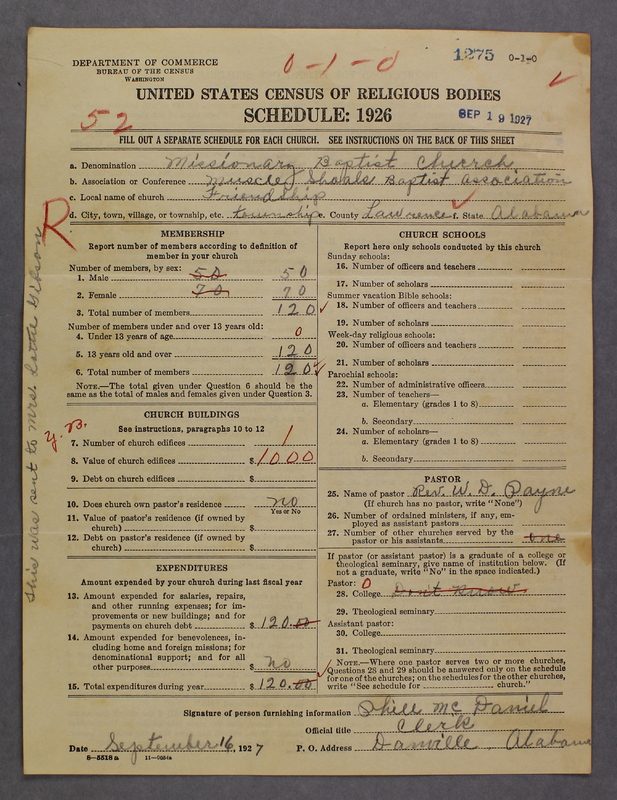 DEPARTMENT OF COMMERCE
BUREAU OF THE CENSUS
WASHINGTON
0-1-0
1275 0-1-0
UNITED STATES CENSUS OF RELIGIOUS BODIES
52
SCHEDULE: 1926
SEP 19 1927
FILL OUT A SEPARATE SCHEDULE FOR EACH CHURCH. SEE INSTRUCTIONS ON THE BACK OF THIS SHEET
a. Denomination Missionary Baptist Church
b. Association or Conference Muscle Shoals Baptist Association
c. Local name of church Friendship
d. City, town, village, or township, etc. township e. County Lawrence f. State Alabama
R
This was sent to Mrs. Lottie Gibson
MEMBERSHIP
Report number of members according to definition of
member in your church
Number of members, by sex:
1. Male 50 50
2. Female 70 70
3. Total number of members 120
Number of members under and over 13 years old:
4. Under 13 years of age 0
5. 13 years old and over 120
6. Total number of members 120
NOTE.—The total given under Question 6 should be the
same as the total of males and females given under Question 3.
CHURCH BUILDINGS
See instructions, paragraphs 10 to 12
7. Number of church edifices 1
8. Value of church edifices $1000
9. Debt on church edifices $
10. Does church own pastor's residence no
Yes or No
11. Value of pastor's residence (if owned by
church) $
12. Debt on pastor's residence (if owned by
church) $
EXPENDITURES
Amount expended by your church during last fiscal year
13. Amount expended for salaries, repairs,
and other running expenses; for im-
provements or new buildings; and for
payments on church debt $120.00
14. Amount expended for benevolences, in-
cluding home and foreign missions; for
denominational support; and for all
other purposes $ no
15. Total expenditures during year $120.00
CHURCH SCHOOLS
Report here only schools conducted by this church
Sunday schools:
16. Number of officers and teachers
17. Number of scholars
Summer vacation Bible schools:
18. Number of officers and teachers
19. Number of scholars
Week-day religious schools:
20. Number of officers and teachers
21. Number of scholars
Parochial schools:
22. Number of administrative officers
23. Number of teachers—
a. Elementary (grades 1 to 8)
b. Secondary
24. Number of scholars—
a. Elementary (grades 1 to 8)
b. Secondary
PASTOR
25. Name of pastor Rev. W. D. Payne
(If church has no pastor, write "None")
26. Number of ordained ministers, if any, em-
ployed as assistant pastors
27. Number of other churches served by the
pastor or his assistants one
If pastor (or assistant pastor) is a graduate of a college or
theological seminary, give name of institution below. (If
not a graduate, write "No" in the space indicated.)
Pastor: 0
28. College Dont know
29. Theological seminary
Assistant pastor:
30. College
31. Theological seminary
NOTE.—Where one pastor serves two or more churches,
Questions 28 and 29 should be answered only on the schedule
for one of the churches; on the schedules for the other churches,
write "See schedule for church."
Signature of person furnishing information Phill Mc Daniel
Official title Clerk
Date September 16, 1927 P. O. Address Danville, Alabama
8—5518 a